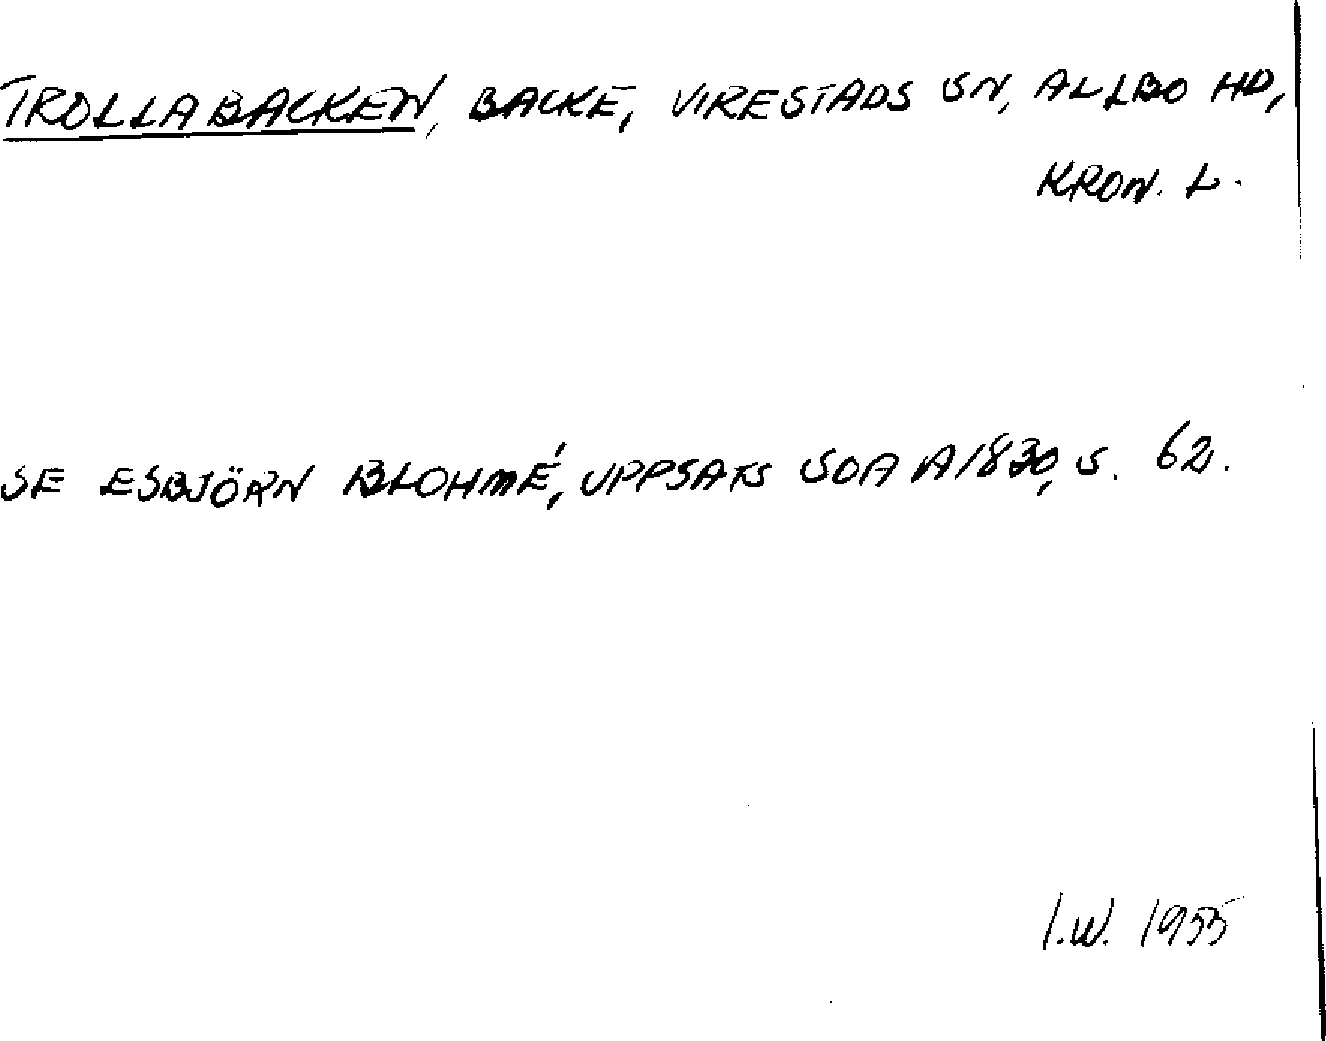 TROLLABACKEN, BACKE, VIRESTADS SN, ALLBO HD,
KRON. L.
SE ESBJÖRN BLOHMÉ, UPPSATS SOA A1830, S. 62.
I.W. 1955